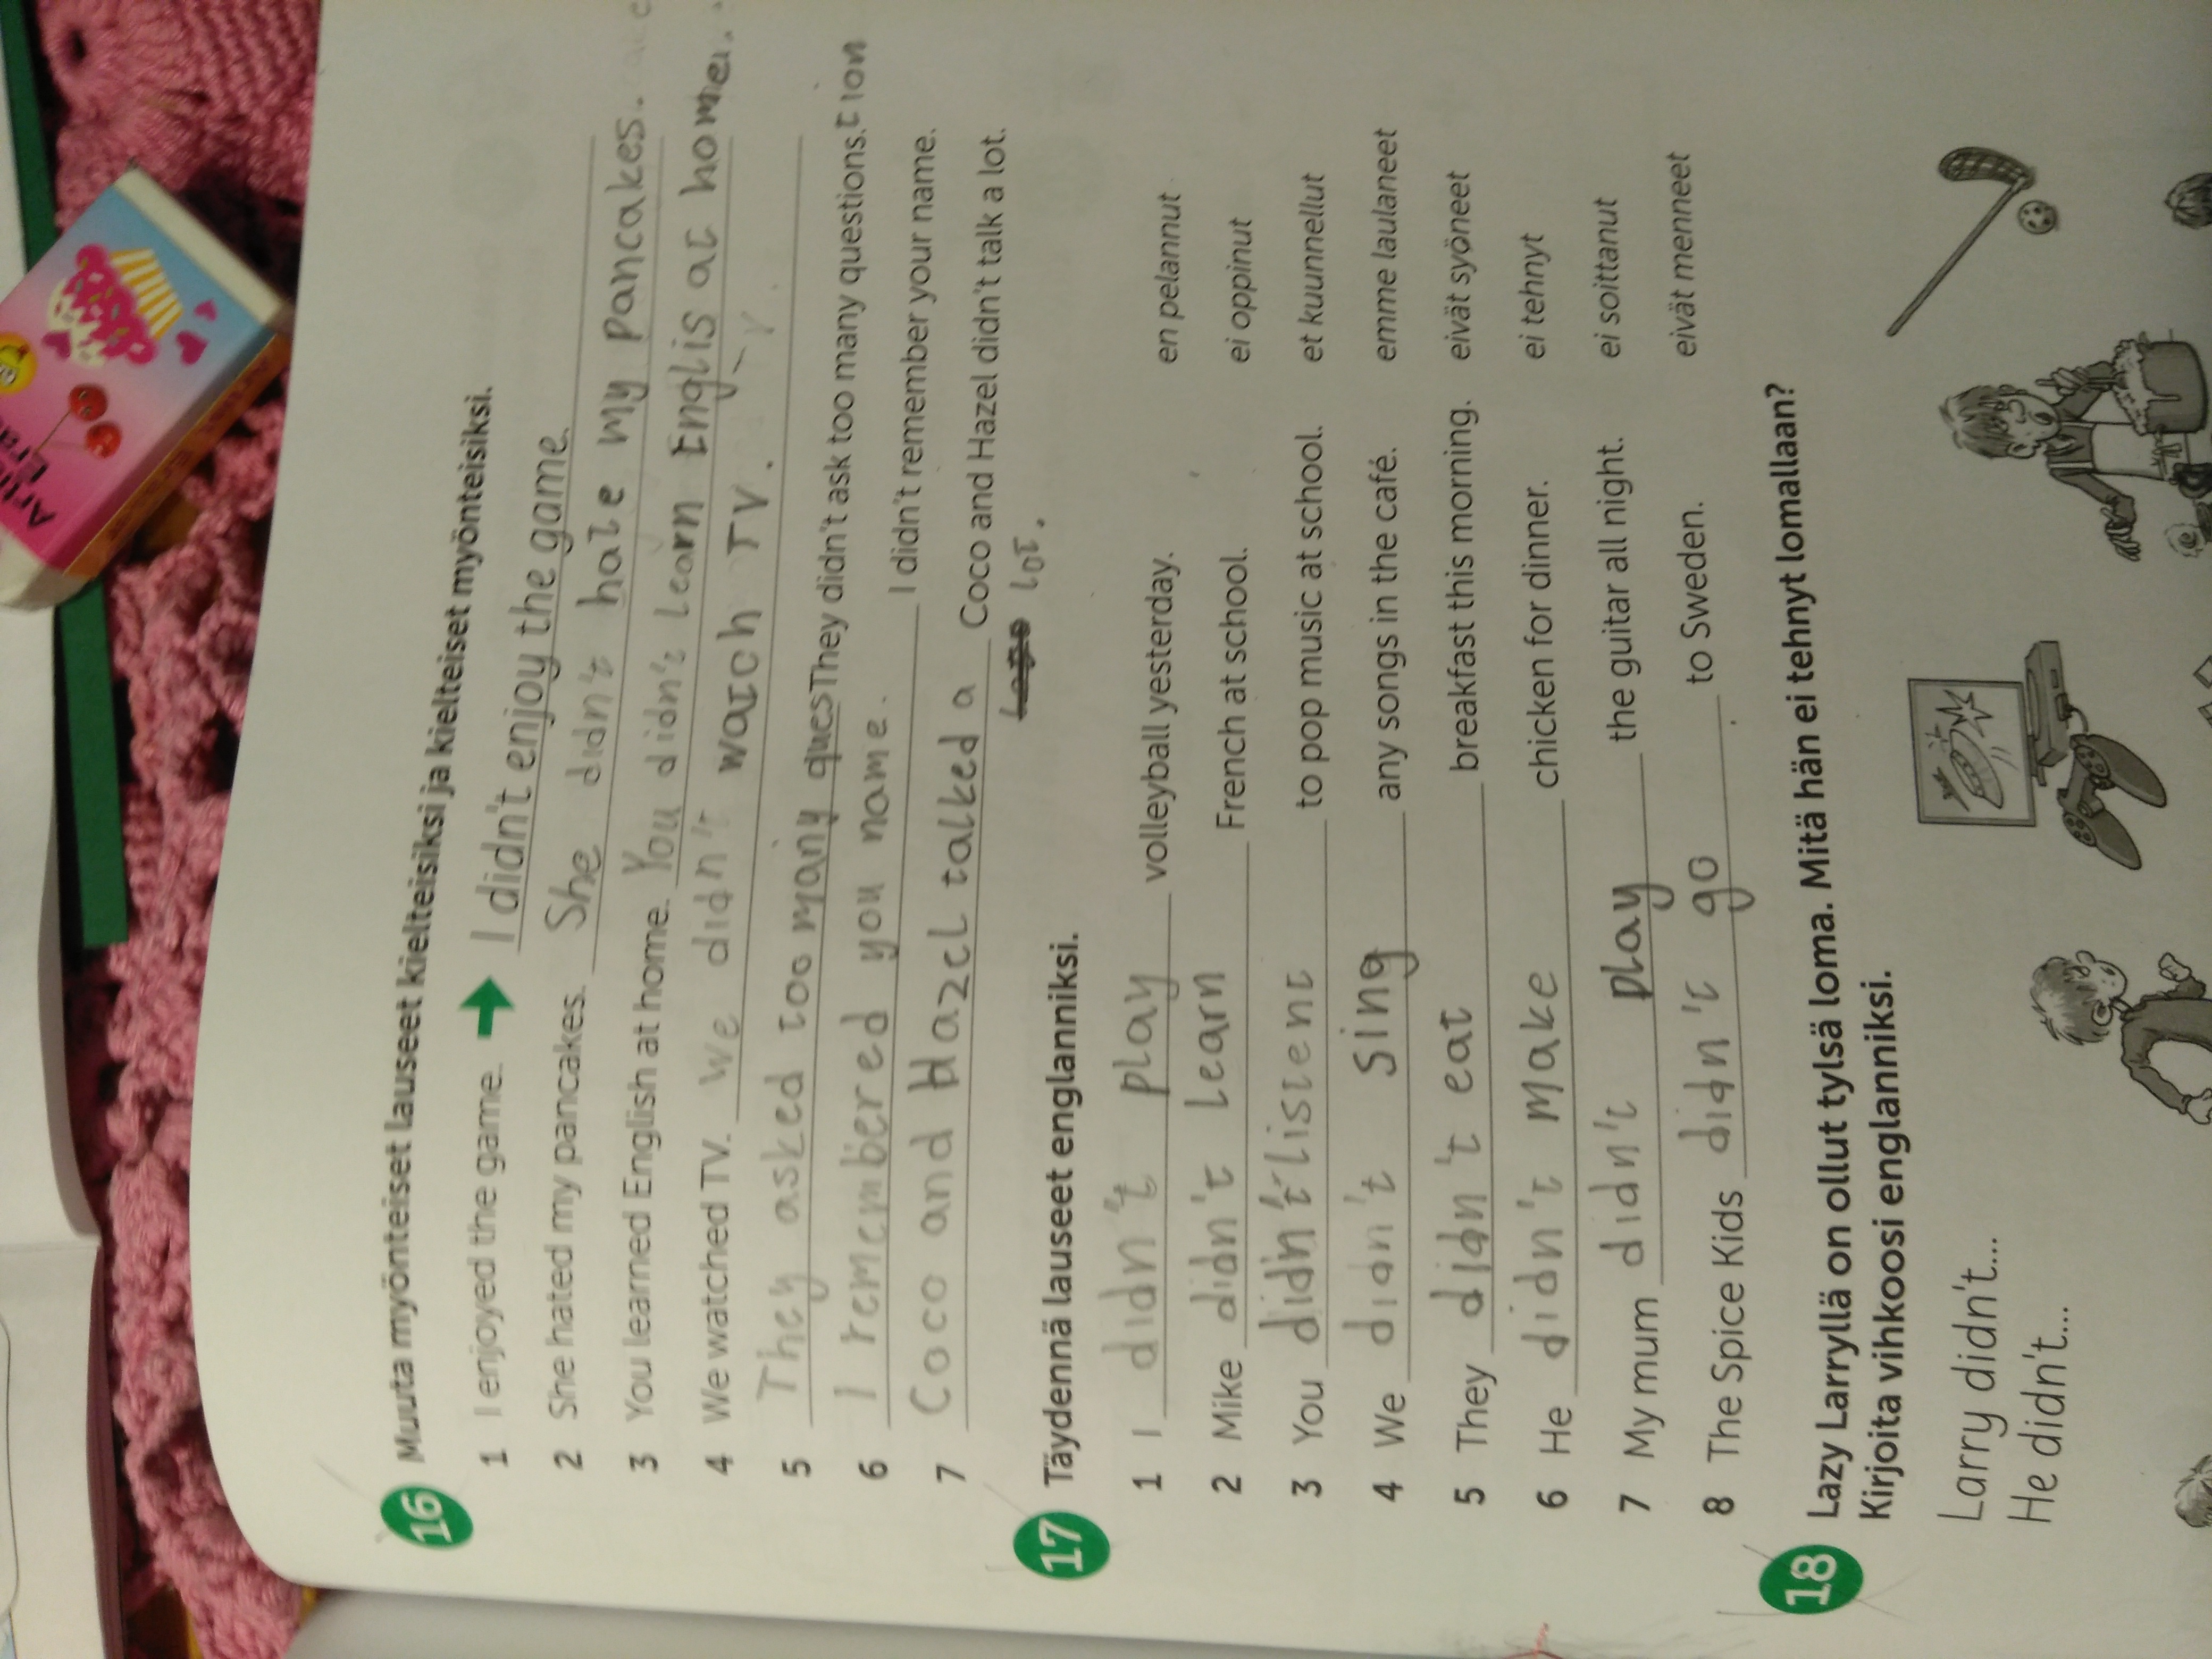 16 Muuta myönteiset lauseet kielteisiksi ja kielteiset myönteisiksi.
1 I enjoyed the game. → I didn't enjoy the game.
2 She hated my pancakes. She didn't hate my pancakes.
3 You learned English at home. You didn't learn Englis at home.
4 We watched TV. We didn't watch TV.
5 They asked too many ques They didn't ask too many questions. tion
6 I remembered you name. I didn't remember your name.
7 Coco and Hazel talked a Coco and Hazel didn't talk a lot.
lot.
17 Täydennä lauseet englanniksi.
1 I didn't play volleyball yesterday. en pelannut
2 Mike didn't learn French at school. ei oppinut
3 You didn't listent to pop music at school. et kuunnellut
4 We didn't sing any songs in the café. emme laulaneet
5 They didn't eat breakfast this morning. eivät syöneet
6 He didn't make chicken for dinner. ei tehnyt
7 My mum didn't play the guitar all night. ei soittanut
8 The Spice Kids didn't go to Sweden. eivät menneet
18 Lazy Larryllä on ollut tylsä loma. Mitä hän ei tehnyt lomallaan?
Kirjoita vihkoosi englanniksi.
Larry didn't...
He didn't...